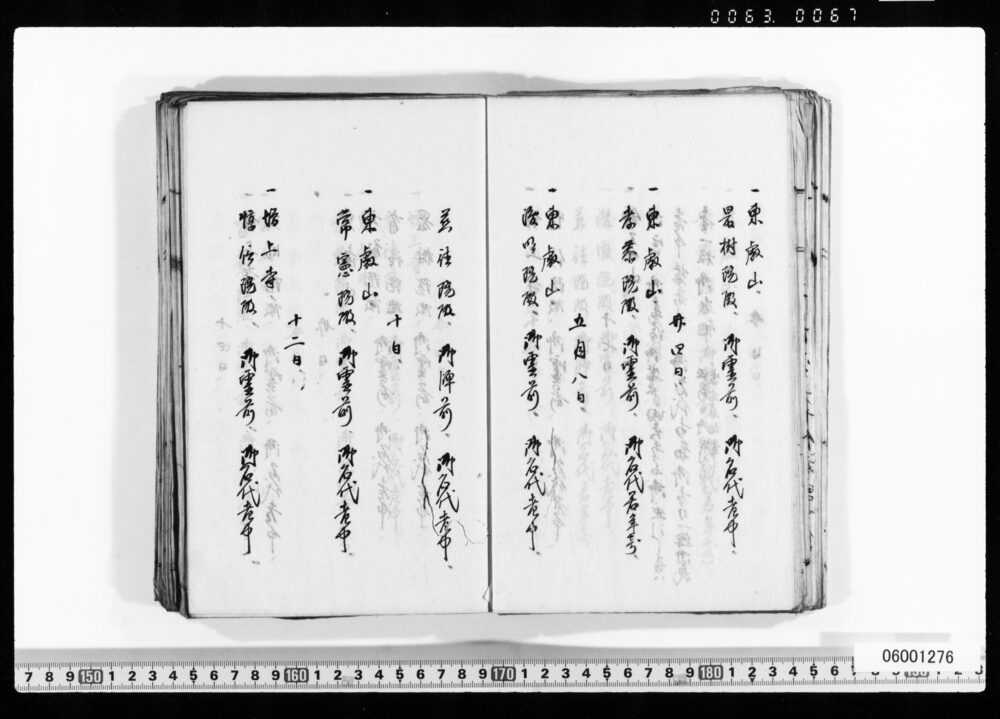 0063.0067
一東叡山、
最樹院殿、御霊前、御名代老中、
廿四日、
一東叡山、
孝恭院殿、御霊前、御名代若年寄、
五月八日、
一東叡山、
厳有院殿、御霊前、御名代老中、
御牌前、御名代老中、
十日、
一東叡山
常憲院殿、御霊前、御名代老中、
十二日、
一増上寺
惇信院殿、御霊前、御名代老中、
7 8 9 150 1 2 3 4 5 6 7 8 9 160 1 2 3 4 5 6 7 8 9 170 1 2 3 4 5 6 7 8 9 180 1 2 3 4 5 6
06001276